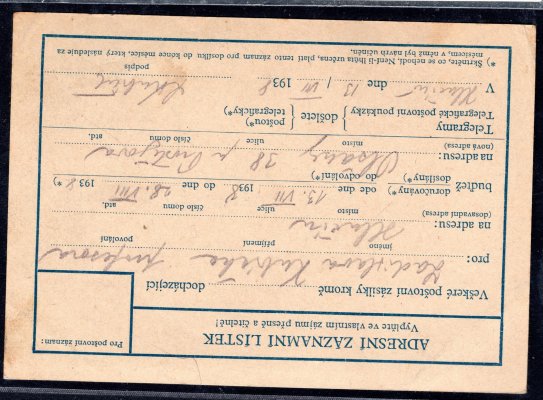 ADRESNÍ ZÁZNAMNÍ LÍSTEK
Vyplňte ve vlastním zájmu přesně a čitelně!
Pro poštovní záznam:
Veškeré poštovní zásilky kromě docházející
pro: Ladislava Kubíčka profesora
jméno příjmení povolání
na adresu: Hlučín
(dosavadní adresa) místo ulice číslo domu atd.
buďtež doručovány*) ode dne 13. VII 1938 do dne 28. VIII 1938 *)
dosílány*) do odvolání*)
na adresu: Olšany 38 p.
(nová adresa) místo ulice číslo domu atd.
Telegramy
Telegrafické poštovní poukázky } došlete { poštou*)
telegraficky*)
V Hlučíně dne 13 / VII 1938
podpis
*) Škrtněte, co se nehodí. Není-li lhůta určena, platí tento záznam pro dosílku do konce měsíce, který následuje za
měsícem, v němž byl návrh učiněn.